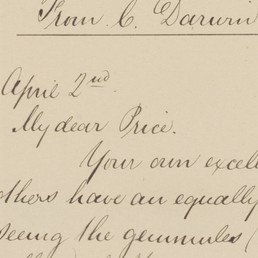 From C. Darwin
April 2nd.
My dear Price.
Your own excel
others have an equally
seeing the gemmules (